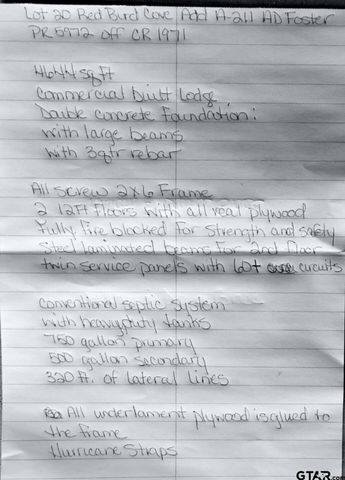 Lot 20 Red Bird Cove Add A-211 AD Foster
PR 5972 off CR 1971
4644 sqft
Commercial Built Lodge
Double concrete Foundation:
with large beams
with 3qtr rebar
All screw 2x6 Frame
2 12ft Floors with all real plywood
Fully fire blocked for strength and safety
Steel laminated beams for 2nd floor
twin service panels with 60+ circuits
conventional septic system
with heavy duty tanks
750 gallon primary
500 gallon secondary
320 ft. of lateral lines
All underlament plywood is glued to
the frame
Hurricane Straps
GTAR.com